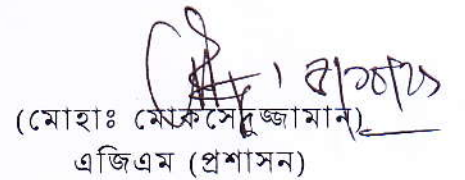 (মোহাঃ মোকসেদুজ্জামান)
এজিএম (প্রশাসন)